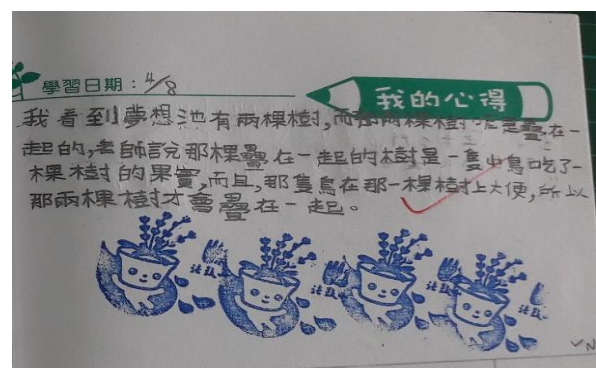 學習日期：4/8
我的心得
我看到夢想池有兩棵樹，而那兩棵樹是疊在一
起的，老師說那棵疊在一起的樹是一隻小鳥吃了一
棵樹的果實，而且，那隻鳥在那一棵樹上大便，所以
那兩棵樹才會疊在一起。